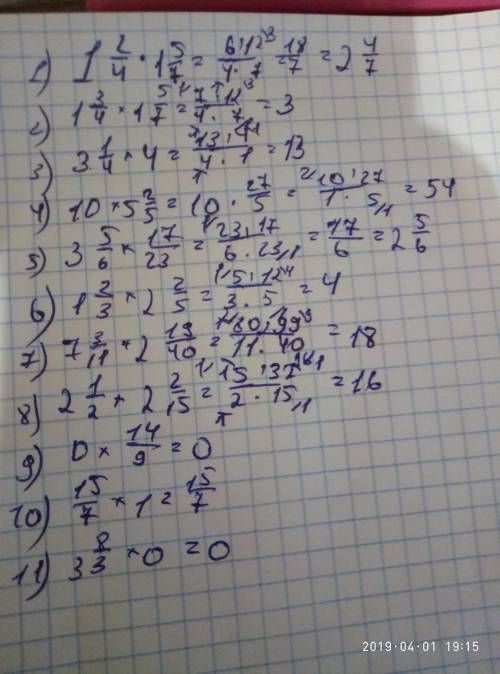 1) 1 2/4 · 1 5/7 = 6·12/4·7 = 18/7 = 2 4/7
2) 1 3/4 × 1 5/7 = 7·12/4·7 = 3
3) 3 1/4 × 4 = 13·4/4·1 = 13
4) 10 × 5 2/5 = 10 · 27/5 = 10·27/1·5 = 54
5) 3 5/6 × 17/23 = 23·17/6·23 = 17/6 = 2 5/6
6) 1 2/3 × 2 2/5 = 5·12/3·5 = 4
7) 7 3/11 × 2 19/40 = 80·99/11·40 = 18
8) 2 1/2 × 2 2/15 = 15·32/2·15 = 16
9) 0 × 14/9 = 0
10) 15/7 × 1 = 15/7
11) 3 8/3 × 0 = 0
2019·04·01 19:15